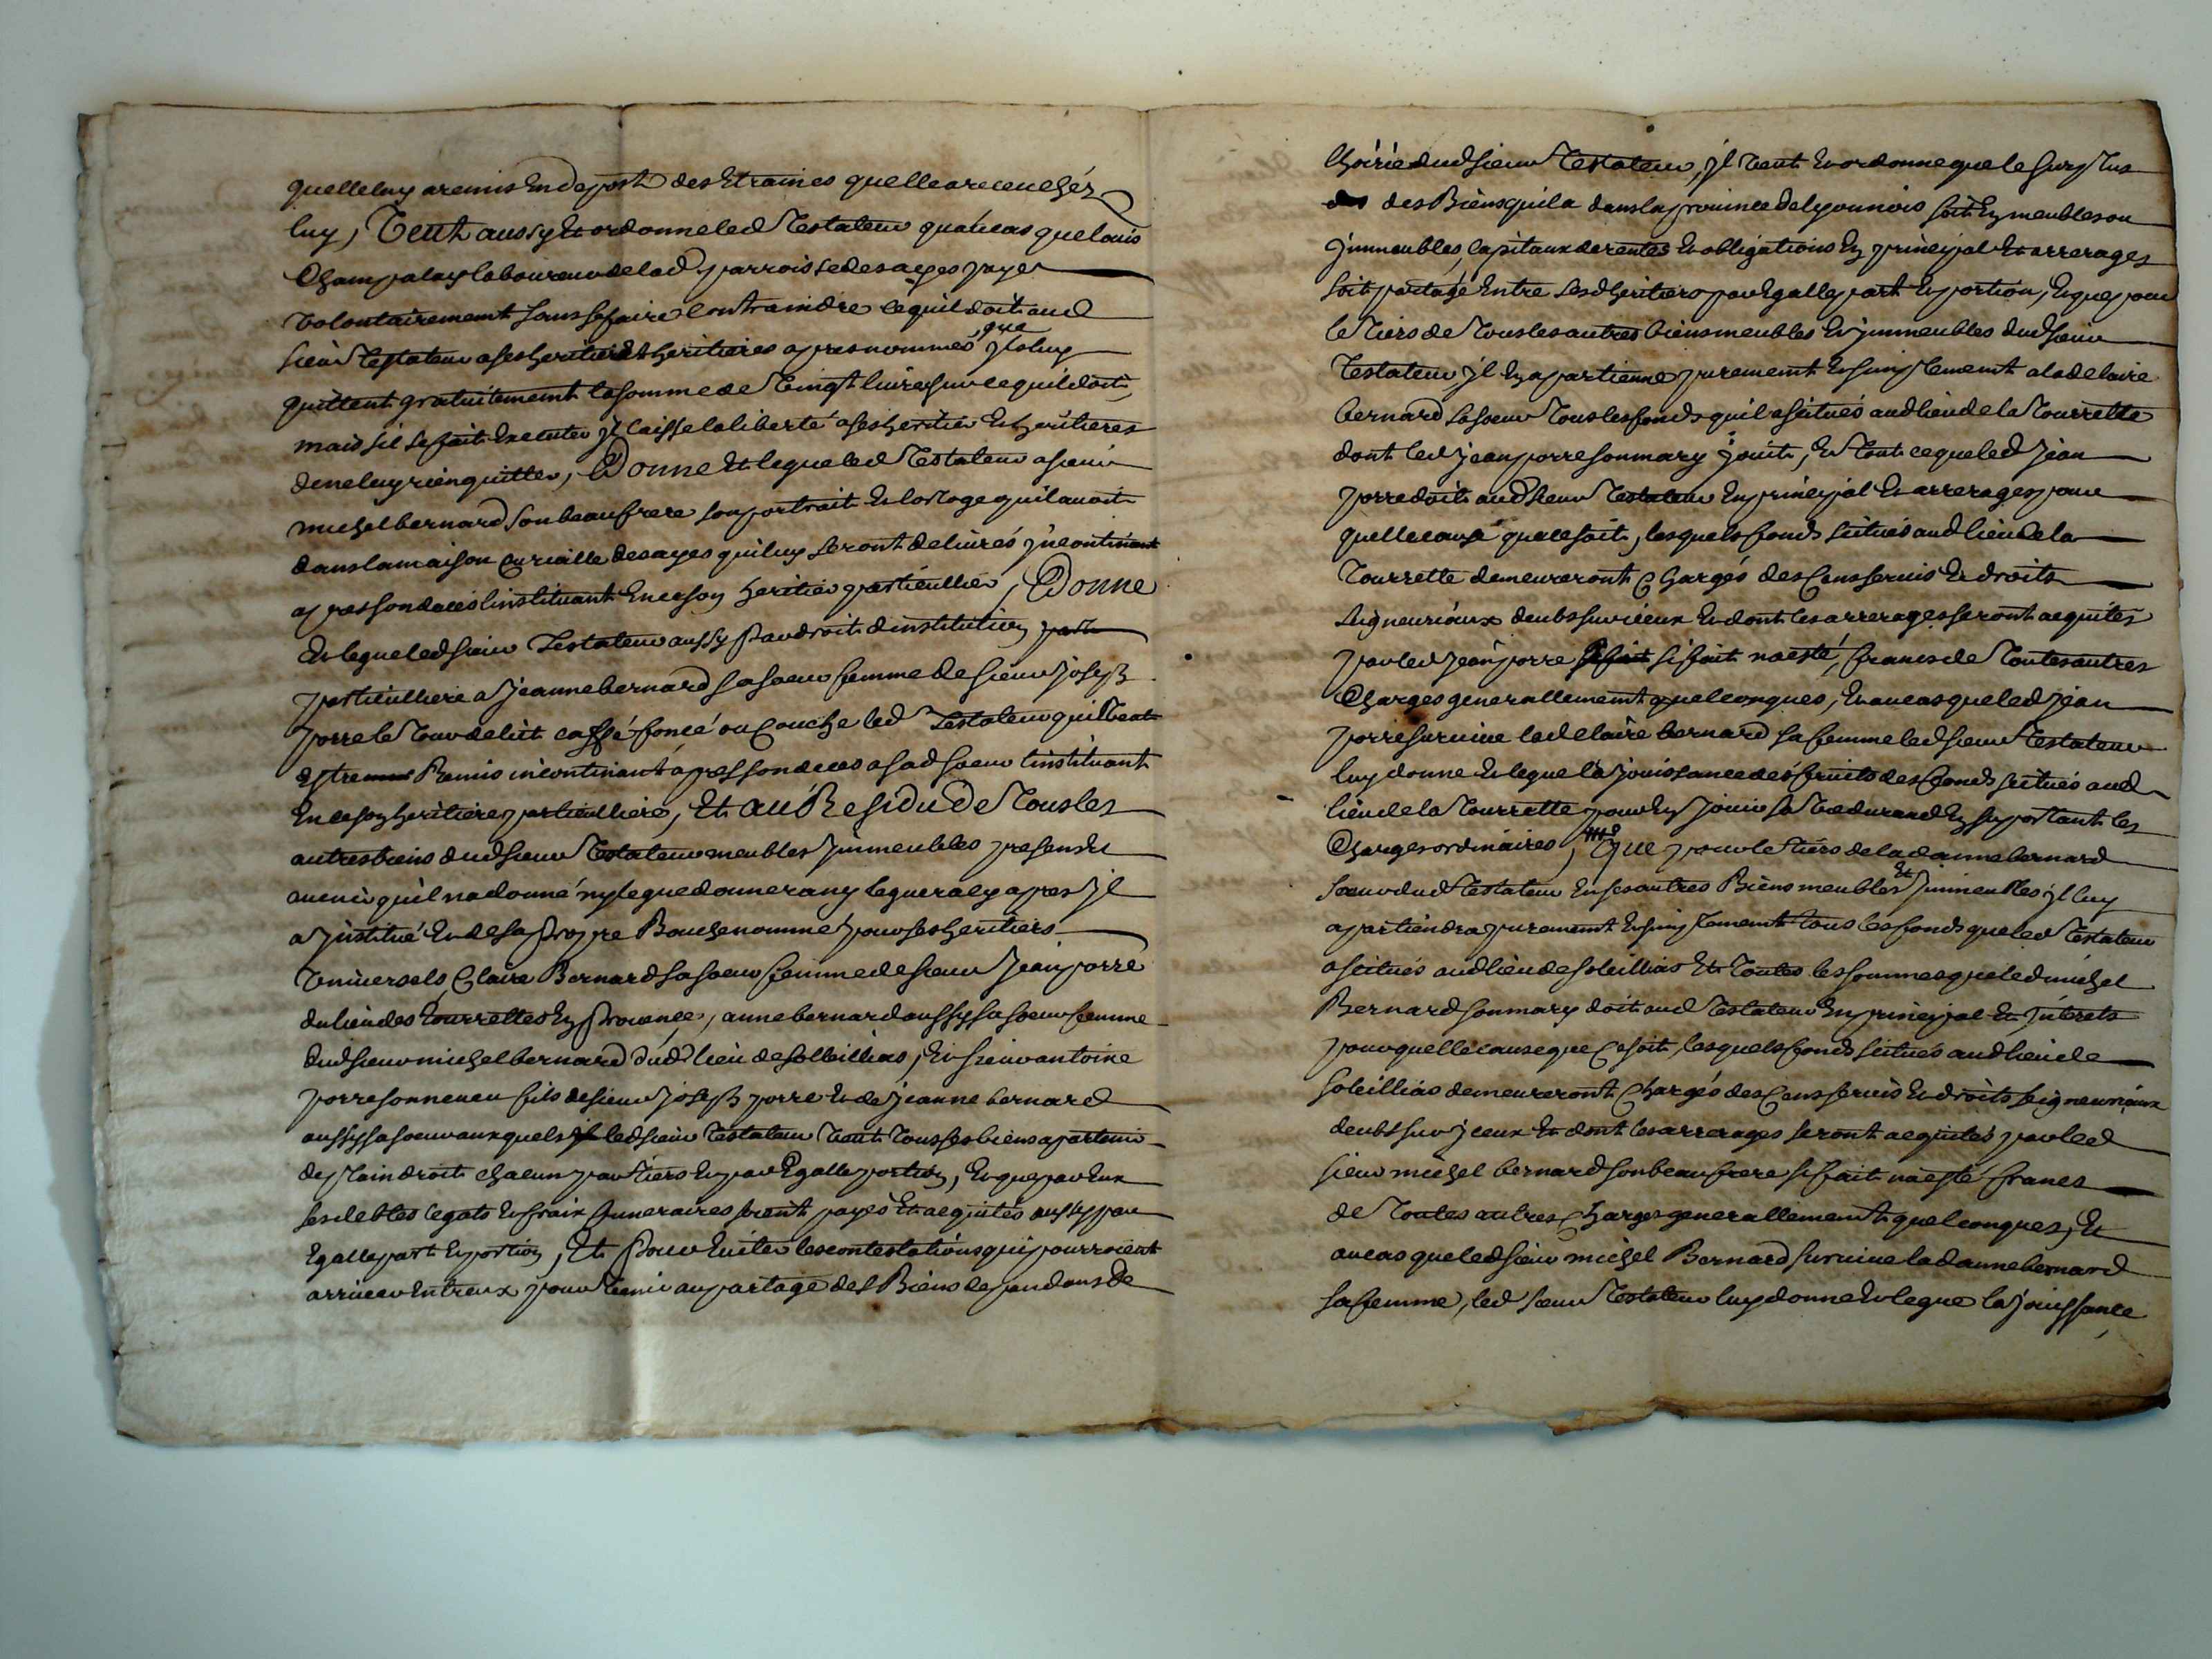 quelle luy a remis En depost des Etraines quelle a receu chéz
luy, Veut aussy Et ordonne led Testateur qu'au cas que louis
Champalay laboureur de lad parroisse desayes paye
volontairement sans se faire Contraindre ce quil doit aud
sieur Testateur a ses heritiers heritieres apres nommés, que jls luy
quittent gratuitement la somme de vingt livres sur ce quil doit,
mais sil se fait Executer jl laisse la liberté a ses heritier Et heritieres
de ne luy rien quitter, Donne Et legue led Testateur a sieur
michel bernard son beau frere son portrait Et lorloge quil avoit
dans la maison Curialle desayes qui luy seront delivrés jncontinant
apres son deces linstituant En ce son heritier particullier, Donne
Et legue led sieur Testateur aussy Par droit dinstitution
particulliere a jeanne bernard sa soeur femme de sieur joseph
porre le Tour de lit caffé foncé ou Couche led Testateur quil veut
estre Remis incontinant apres son deces a sad soeur linstituant
En ce son heritiere particulliere, Et au Residu de Tous les
autres biens dud sieur Testateur meubles jmmeubles presens Et
avenir quil na donné ny legue donnera ny leguera cy apres jl
a jnstitué Et de sa Propre Bouche nommé pour ses heritiers
Vniversels Claire Bernard sa soeur femme de sieur jean porre
du lieu des Tourrettes En Provence, anne bernard aussy sa soeur femme
dud sieur michel bernard dud lieu de solleillias, Et sieur antoine
porre son neveu fils de sieur joseph porre Et de jeanne bernard
aussy sa soeur auxquels led sieur Testateur Veut Tous ses biens apartenir
de plain droit chacun par tiers Et par Egalle portion, Et que par Eux
ses debtes legats Et fraix funeraires soient payés Et acquités aussy par
Egalle part Et portion, Et Pour Eviter les contestations qui pourroient
arriver Entreux pour venir au partage des Biens dependans de
lhoirie dud sieur Testateur, jl veut Et ordonne que le surplus
des Biens quil a dans la province de lyonnois soit En meubles ou
jmmeubles, Capitaux de rentes Et obligations En principal Et arrerages
soit partagé Entre sesd heritiers par Egalle part Et portion, Et que pour
le Tiers de Tous les autres biens meubles Et jmmeubles dud sieur
Testateur jl En apartienne purement Et simplement a lad claire
bernard sa soeur Tous les fonds quil a scitués aud lieu de la Tourrette
dont led jean porre son mary jouit, Et Tout ce que led jean
porre doit aud sieur Testateur En principal Et arrerages pour
quelle cause que ce soit, lesquels fonds scitués aud lieu de la
Tourrette demeureront Chargés des Cens servis Et droits
seigneuriaux deubs sur iceux Et dont les arrerages seront acquités
par led jean porre si fait na esté, francs de Toutes autres
Charges generallement quelconques, Et au cas que led jean
porre survive lad claire bernard sa femme led sieur Testateur
luy donne Et legue la jouissance des fruits des fonds scitués aud
lieu de la Tourrette pour En jouir sa vie durand En suportant les
Charges ordinaires, Que pour le Tiers de lad anne bernard
soeur dud Testateur En ses autres Biens meubles Et jmmeubles jl luy
apartiendra purement Et simplement tous les fonds que led Testateur
a scitués aud lieu de soleillias Et Toutes les sommes que led michel
Bernard son mary doit aud Testateur En principal Et jnterets
pour quelle cause que Ce soit, lesquels fonds scitués aud lieu de
soleillias demeureront Chargés des Cens servis Et droits seigneuriaux
deubs sur jceux Et dont les arrerages seront acquités par led
sieur michel bernard son beau frere si fait na esté francs
de Toutes autres Charges generallement quelconques, Et
au cas que led sieur michel Bernard survive lad anne bernard
sa femme, led sieur Testateur luy donne Et legue la jouissance